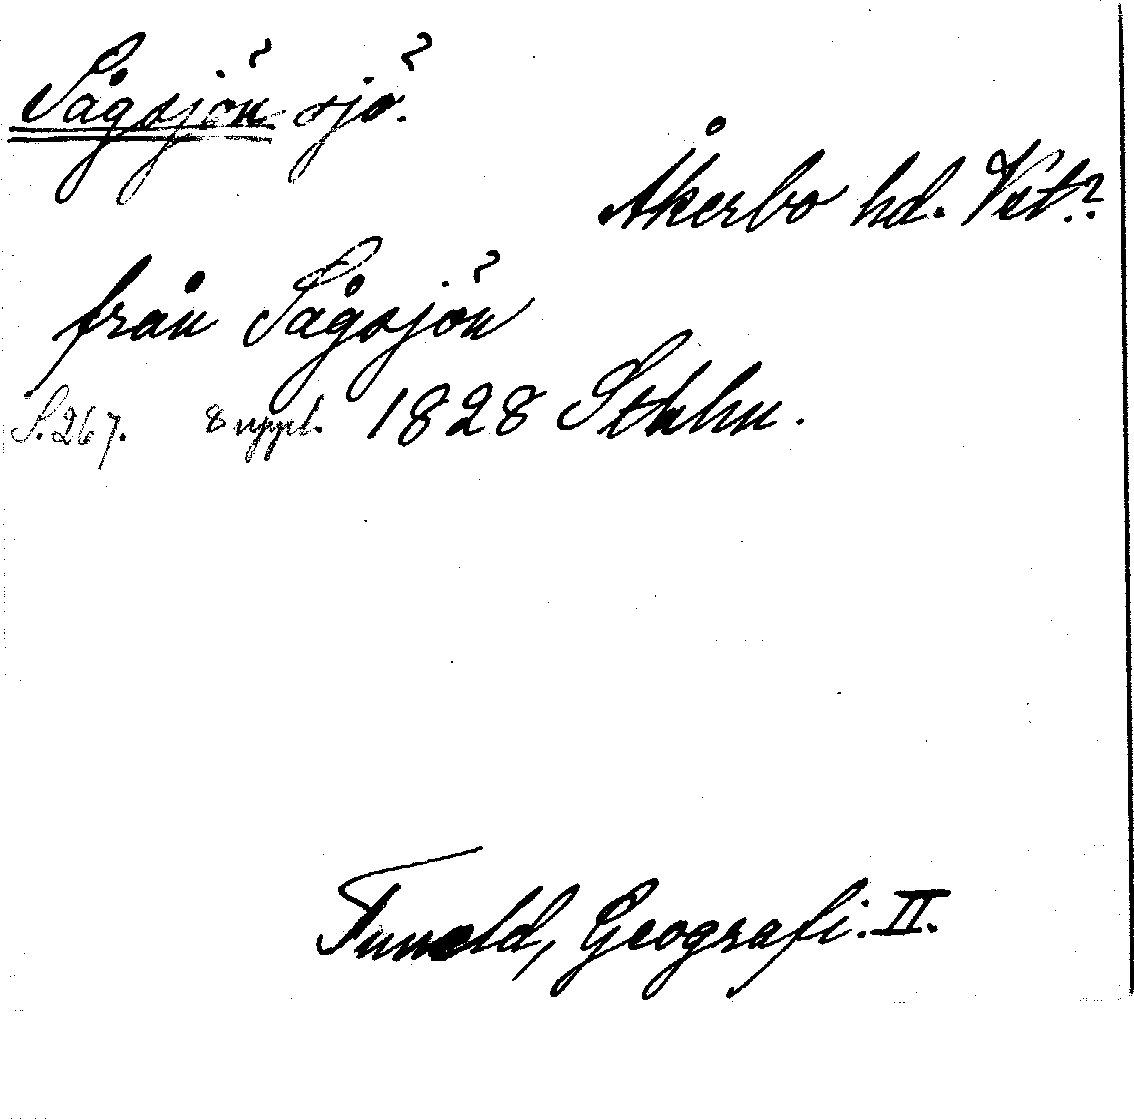 Sågsjön sjö.
Åkerbo hd. Vstm?
från Sågsjön
S. 267. 8 uppl. 1828 Sthlm.
Tuneld, Geografi. II.